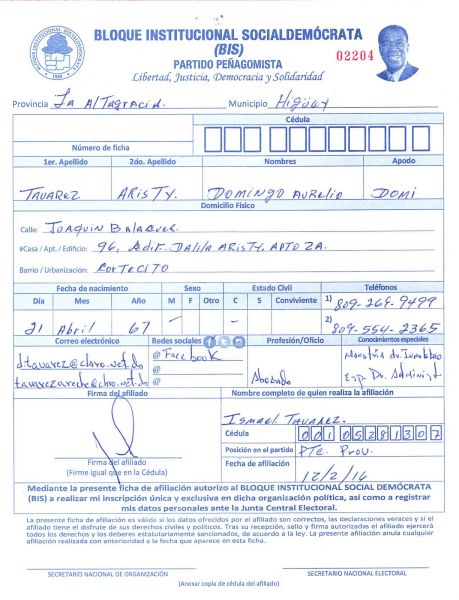 BLOQUE INSTITUCIONAL SOCIALDEMÓCRATA
(BIS)
02204
PARTIDO PEÑAGOMISTA
Libertad, Justicia, Democracia y Solidaridad
Provincia La Altagracia. Municipio Higüey
Cédula
Número de ficha
1er. Apellido 2do. Apellido Nombres Apodo
TAVAREZ ARISTY. DOMINGO AURELIO DOMI
Domicilio Físico
Calle: JOAQUIN BALAGUER.
#Casa / Apt. / Edificio: 96, Edif. DALILA ARISTY, APTO 2A.
Barrio / Urbanización: CORTECITO
Fecha de nacimiento Sexo Estado Civil Teléfonos
Día Mes Año M F Otro C S Conviviente 1) 809-269-9499
21 Abril 67 – – 2) 809-554-2365
Correo electrónico Redes sociales Profesión/Oficio Conocimientos especiales
d.tavarez@claro.net.do @ Facebook Abogado Maestría
@claro.net.do @ Esp. De. Administ
@
Firma del afiliado Nombre completo de quien realiza la afiliación
ISMAEL TAVAREZ.
Cédula 00105281307
Posición en el partido PTE. Prov.
Firma del afiliado
(Firme igual que en la Cédula)
Fecha de afiliación 12/2/16
Mediante la presente ficha de afiliación autorizo al BLOQUE INSTITUCIONAL SOCIAL DEMÓCRATA
(BIS) a realizar mi inscripción única y exclusiva en dicha organización política, así como a registrar
mis datos personales ante la Junta Central Electoral.
La presente ficha de afiliación es válida si los datos ofrecidos por el afiliado son correctos, las declaraciones veraces y si el
afiliado tiene el disfrute de sus derechos civiles y políticos. Tras su recepción, sello y firma autorizados el afiliado ejercerá
todos los derechos y los deberes estatutariamente sancionados, de acuerdo a la ley. La presente afiliación anula cualquier
afiliación realizada con anterioridad a la fecha que aparece en esta ficha.
SECRETARIO NACIONAL DE ORGANIZACIÓN SECRETARIO NACIONAL ELECTORAL
(Anexar copia de cédula del afiliado)